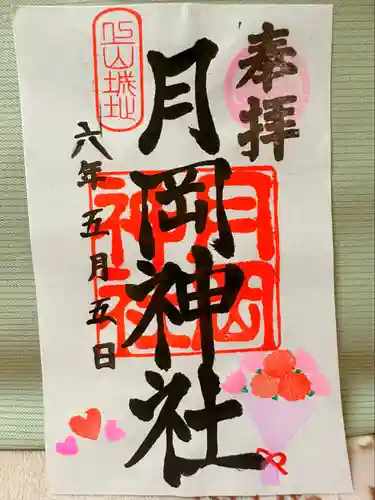 奉拝
月岡神社
六年五月五日
山城址
月岡
神社